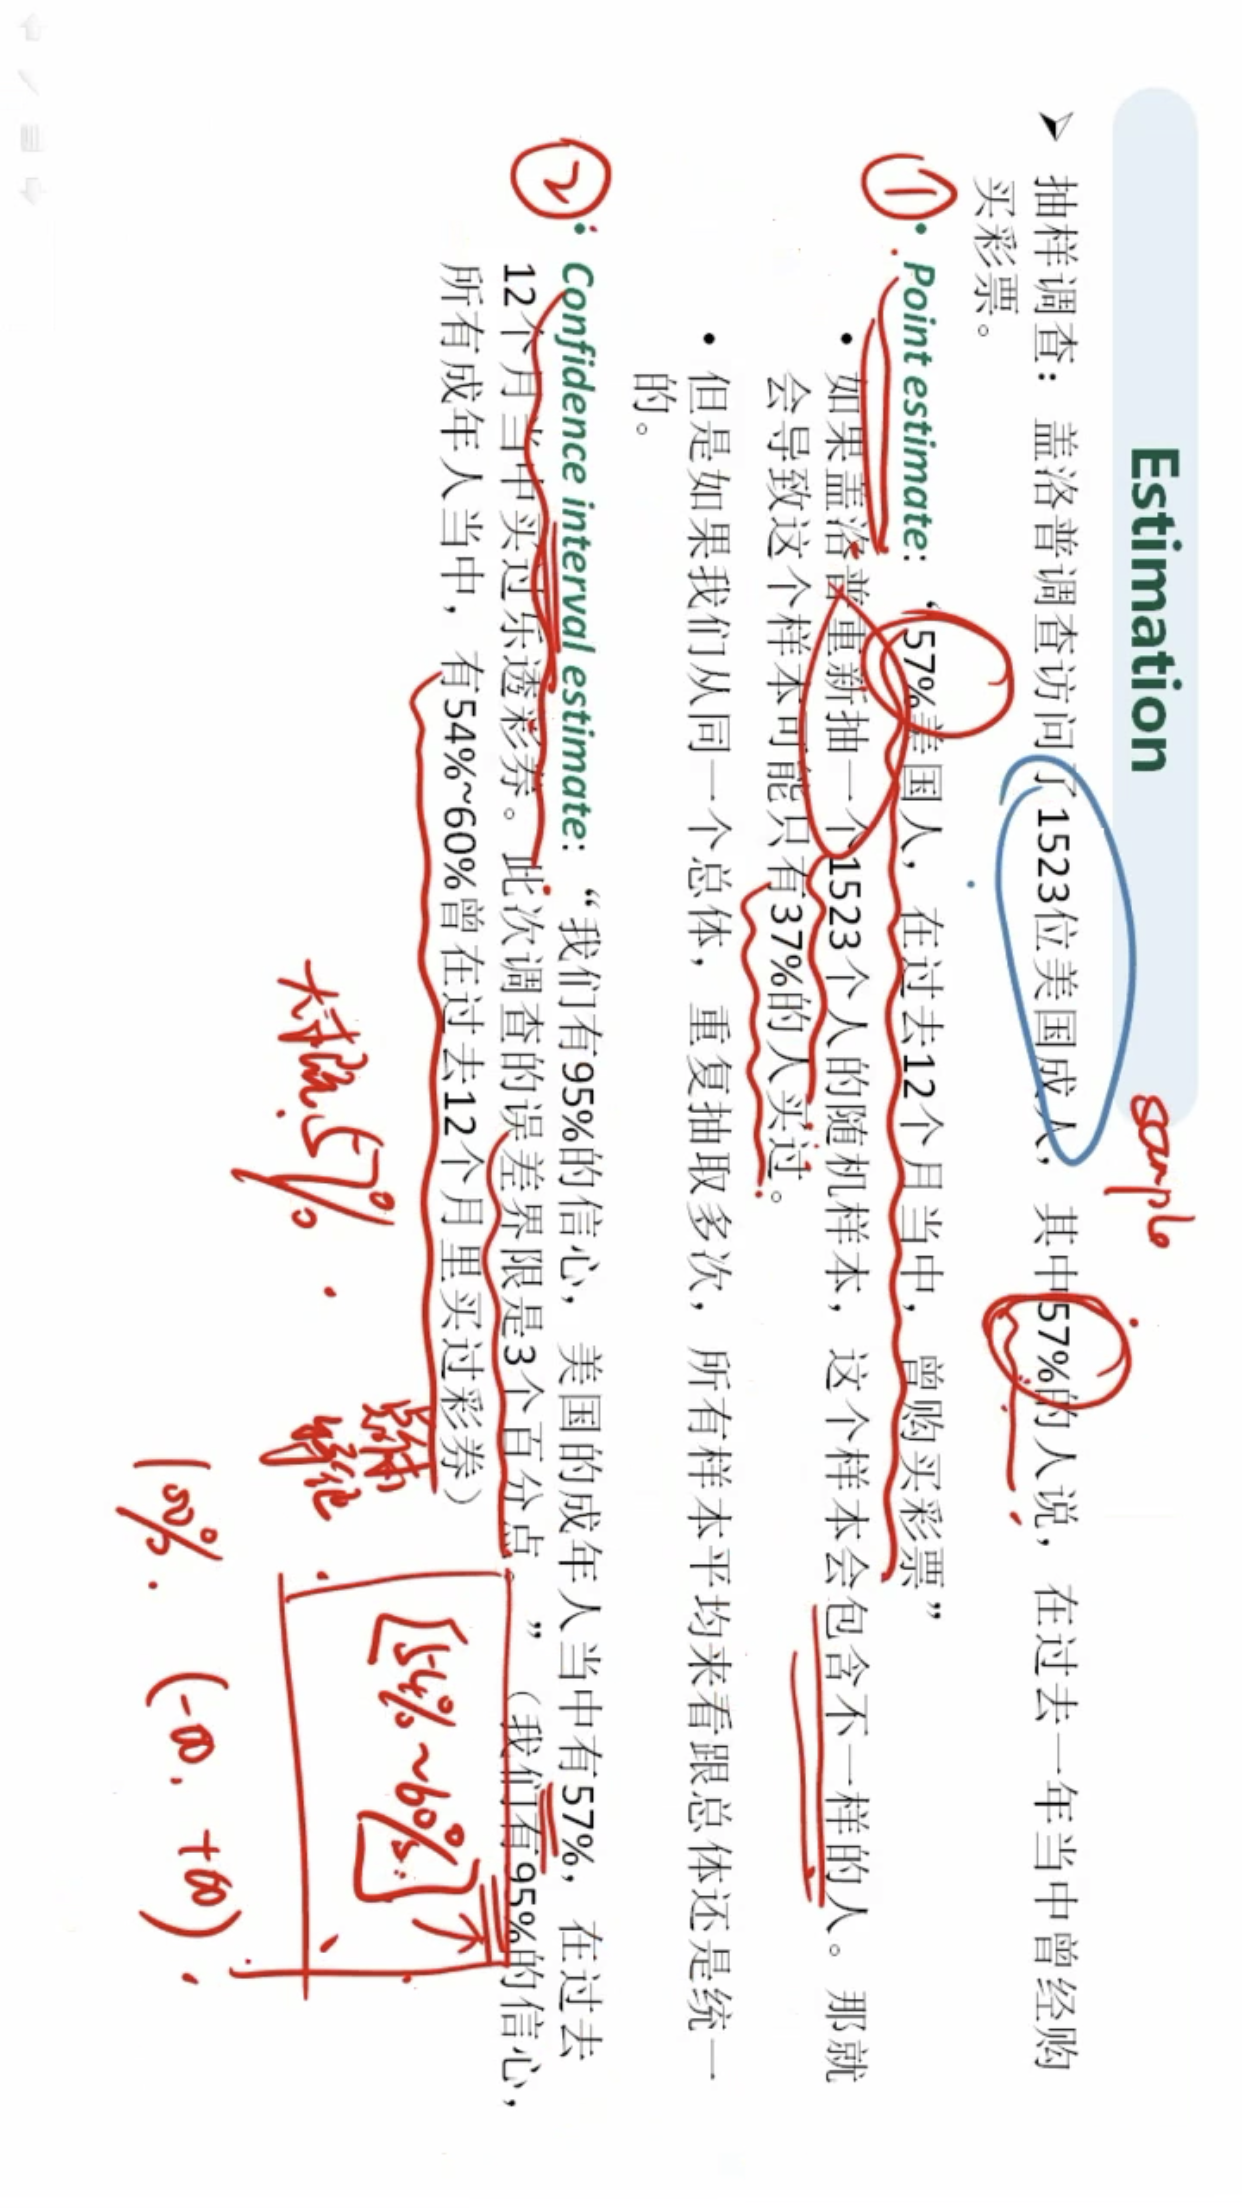 Estimation
sample
➤ 抽样调查： 盖洛普调查访问了1523位美国成人，其中57%的人说，在过去一年当中曾经购
买彩票。
① • Point estimate: “57%美国人，在过去12个月当中，曾购买彩票”
• 如果盖洛普重新抽一个1523个人的随机样本，这个样本会包含不一样的人。那就
会导致这个样本可能只有37%的人买过。
• 但是如果我们从同一个总体，重复抽取多次，所有样本平均来看跟总体还是统一
的。
② • Confidence interval estimate: “我们有95%的信心，美国的成年人当中有57%，在过去
12个月当中买过乐透彩券。此次调查的误差界限是3个百分点。”（我们有95%的信心，
所有成年人当中，有54%~60%曾在过去12个月里买过彩券）
[54% ~60%]
57%
100%. (-∞. +∞)